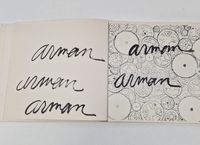 arman
arman
arman
arman
arman